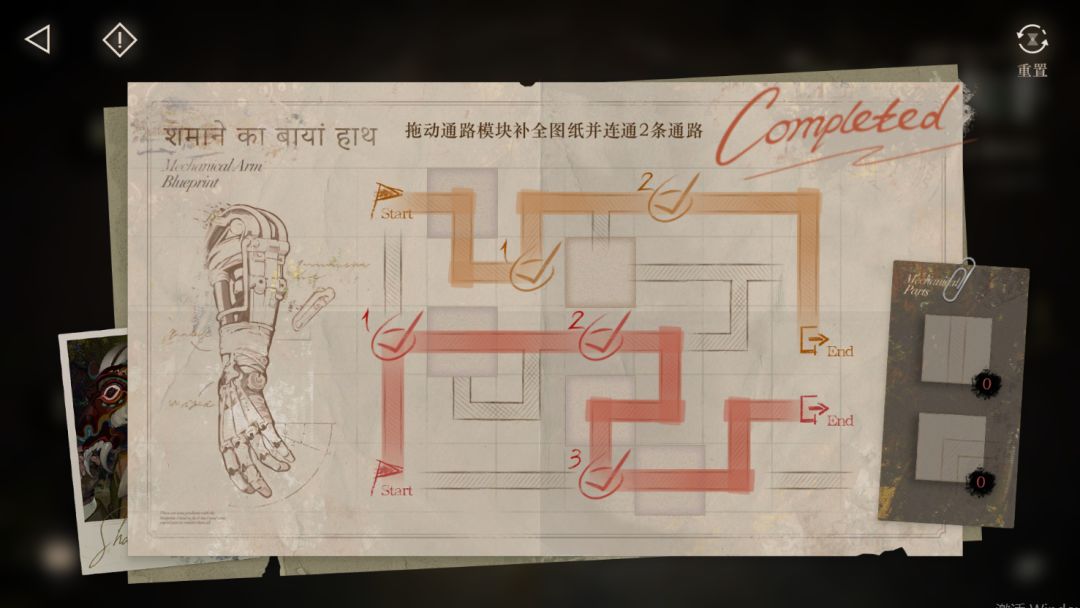 重置
शमाने का बायां हाथ
Mechanical Arm
Blueprint
拖动通路模块补全图纸并连通2条通路
Completed
Start
1
2
End
1
2
3
Start
End
Mechanical
Parts
0
0
Sha
激活 Windo